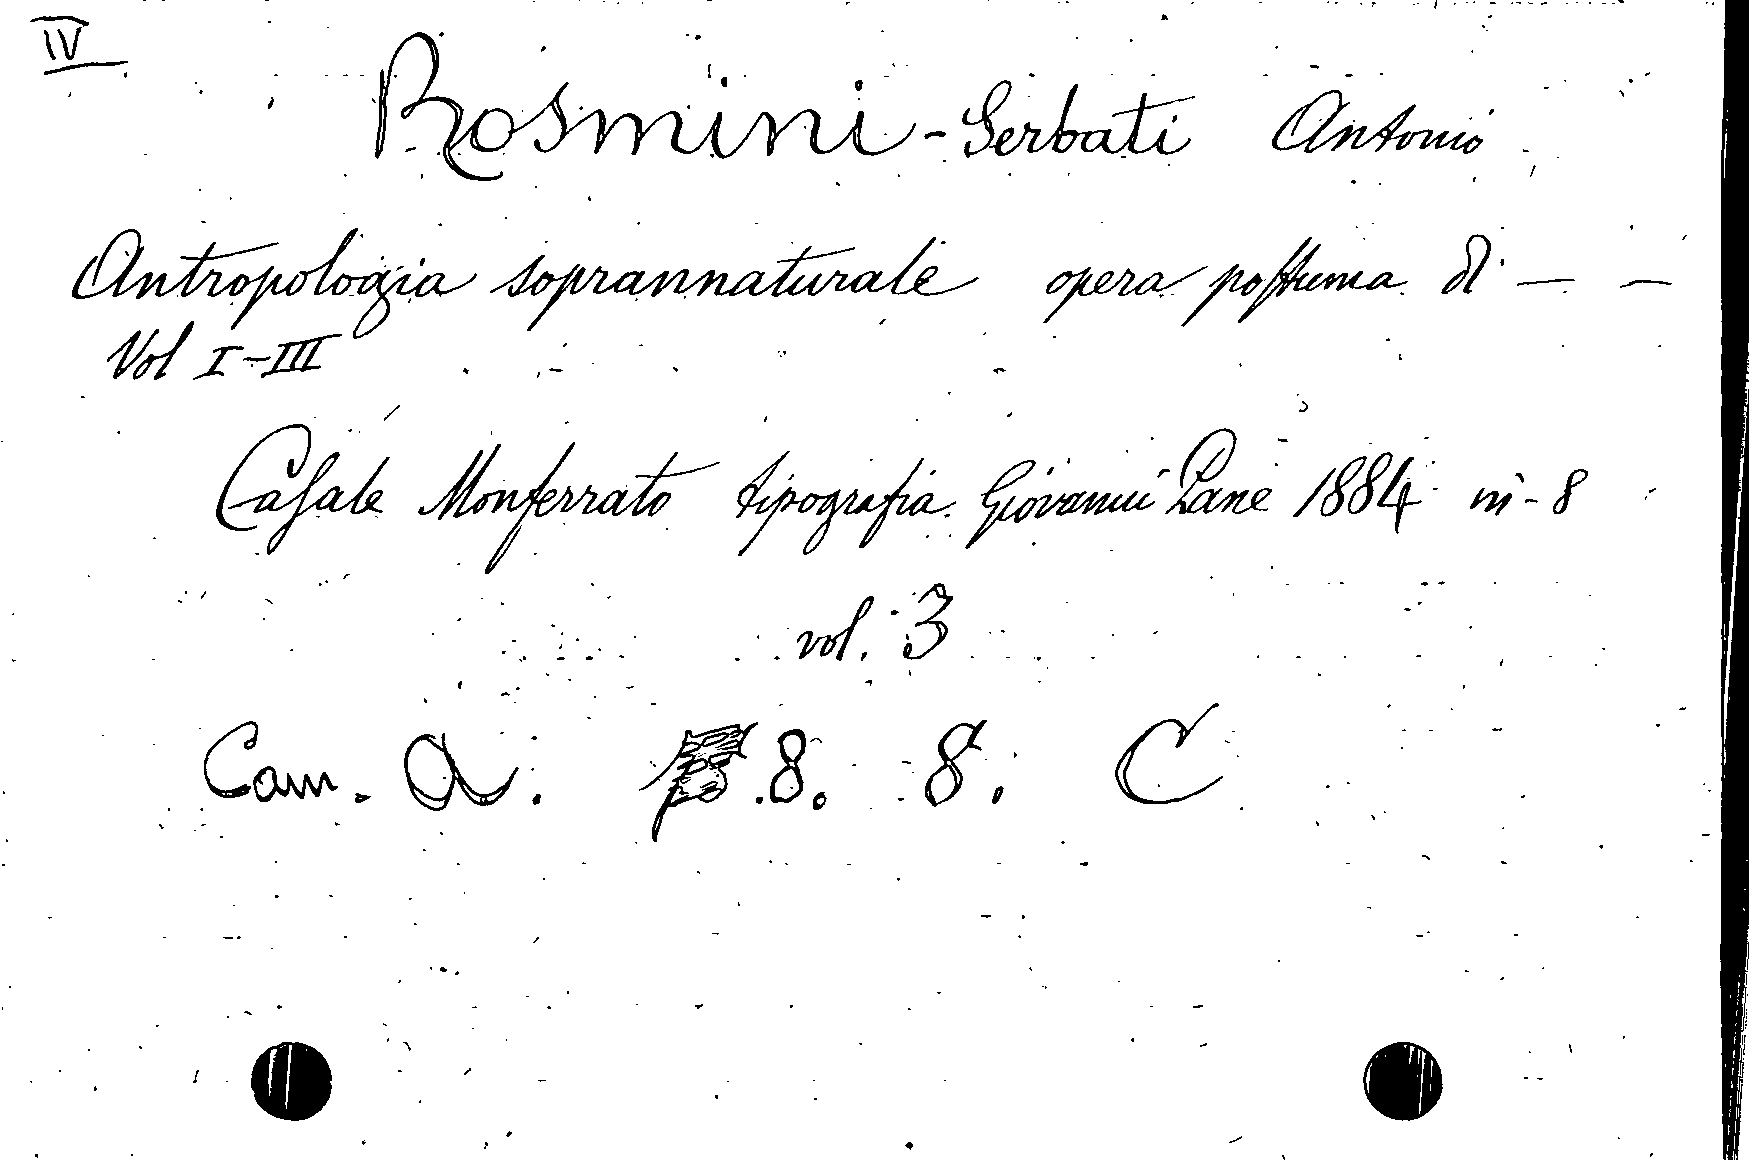 IV
Rosmini-Serbati Antonio
Antropologia soprannaturale opera postuma di — —
Vol I-III
Casale Monferrato tipografia Giovanni Pane 1884 in-8
vol. 3
Cam. A. 8. 8. C